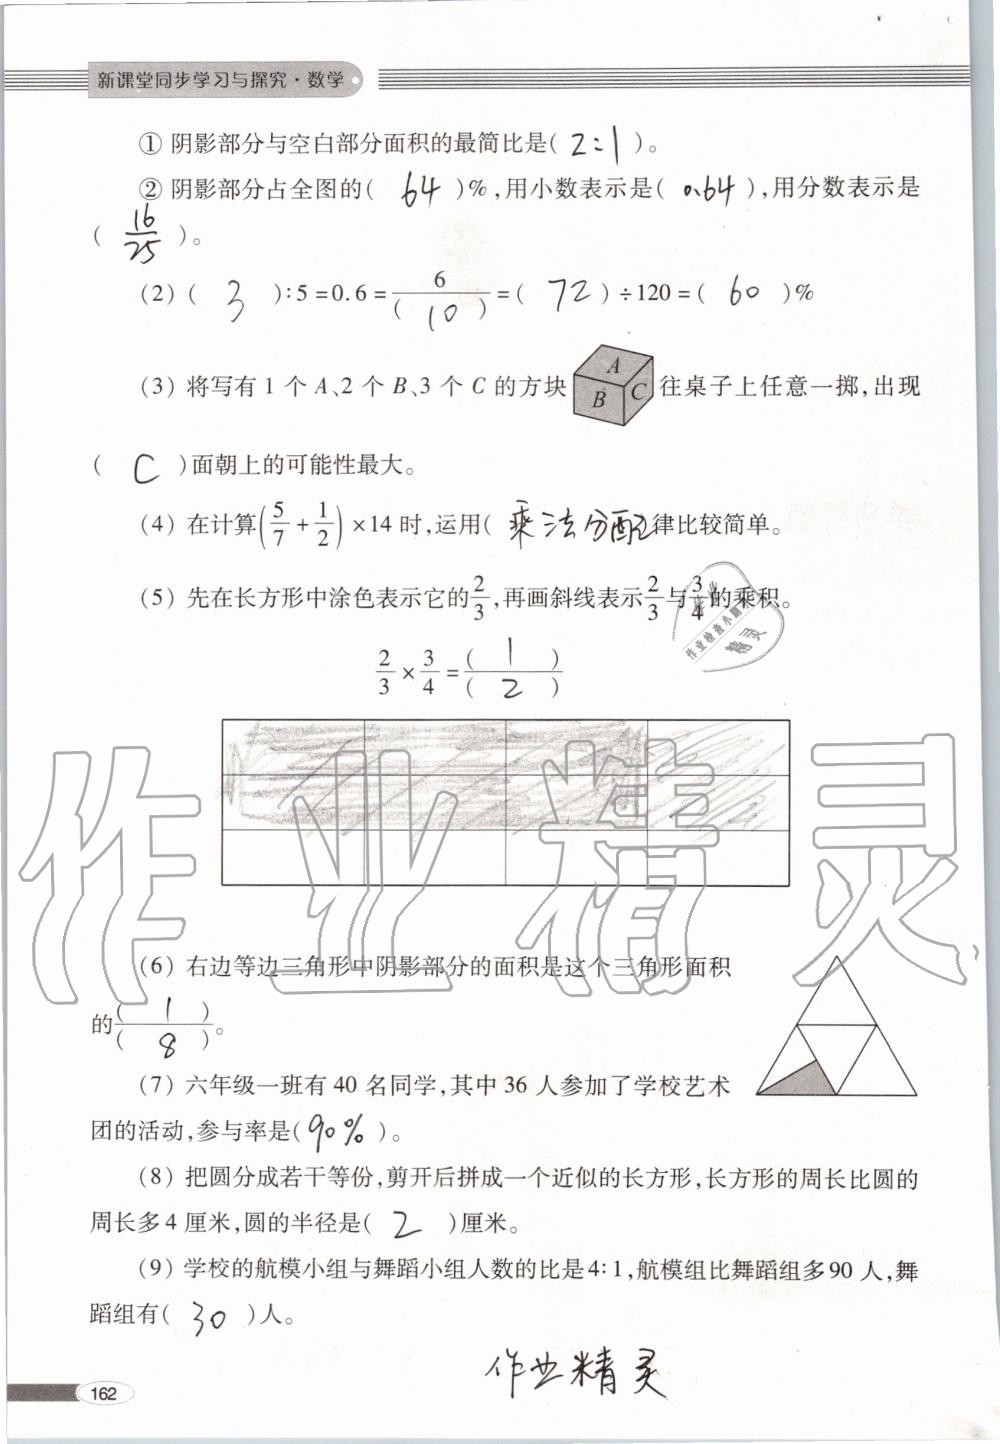 新课堂同步学习与探究·数学
① 阴影部分与空白部分面积的最简比是( 2:1 )。
② 阴影部分占全图的( 64 )%,用小数表示是( 0.64 ),用分数表示是
( 16/25 )。
(2) ( 3 ):5=0.6=6/( 10 )=( 72 )÷120=( 60 )%
(3) 将写有 1 个 A、2 个 B、3 个 C 的方块 A B C 往桌子上任意一掷,出现
( C )面朝上的可能性最大。
(4) 在计算(5/7+1/2)×14时,运用( 乘法分配律比较简单。
(5) 先在长方形中涂色表示它的2/3,再画斜线表示2/3与3/4的乘积。
作业检查小助手
精灵
2/3×3/4=( 1 )/( 2 )
作业精灵
(6) 右边等边三角形中阴影部分的面积是这个三角形面积
的( 1 )/( 8 )。
(7) 六年级一班有 40 名同学,其中 36 人参加了学校艺术
团的活动,参与率是( 90% )。
(8) 把圆分成若干等份,剪开后拼成一个近似的长方形,长方形的周长比圆的
周长多4厘米,圆的半径是( 2 )厘米。
(9) 学校的航模小组与舞蹈小组人数的比是4:1,航模组比舞蹈组多90人,舞
蹈组有( 30 )人。
作业精灵
162